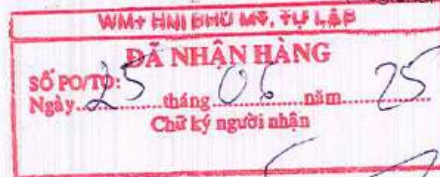 WM+ HNI BHU MỸ, TỰ LẬP
ĐÃ NHẬN HÀNG
SỐ PO/TO:
Ngày 25 tháng 06 năm 25
Chữ ký người nhận